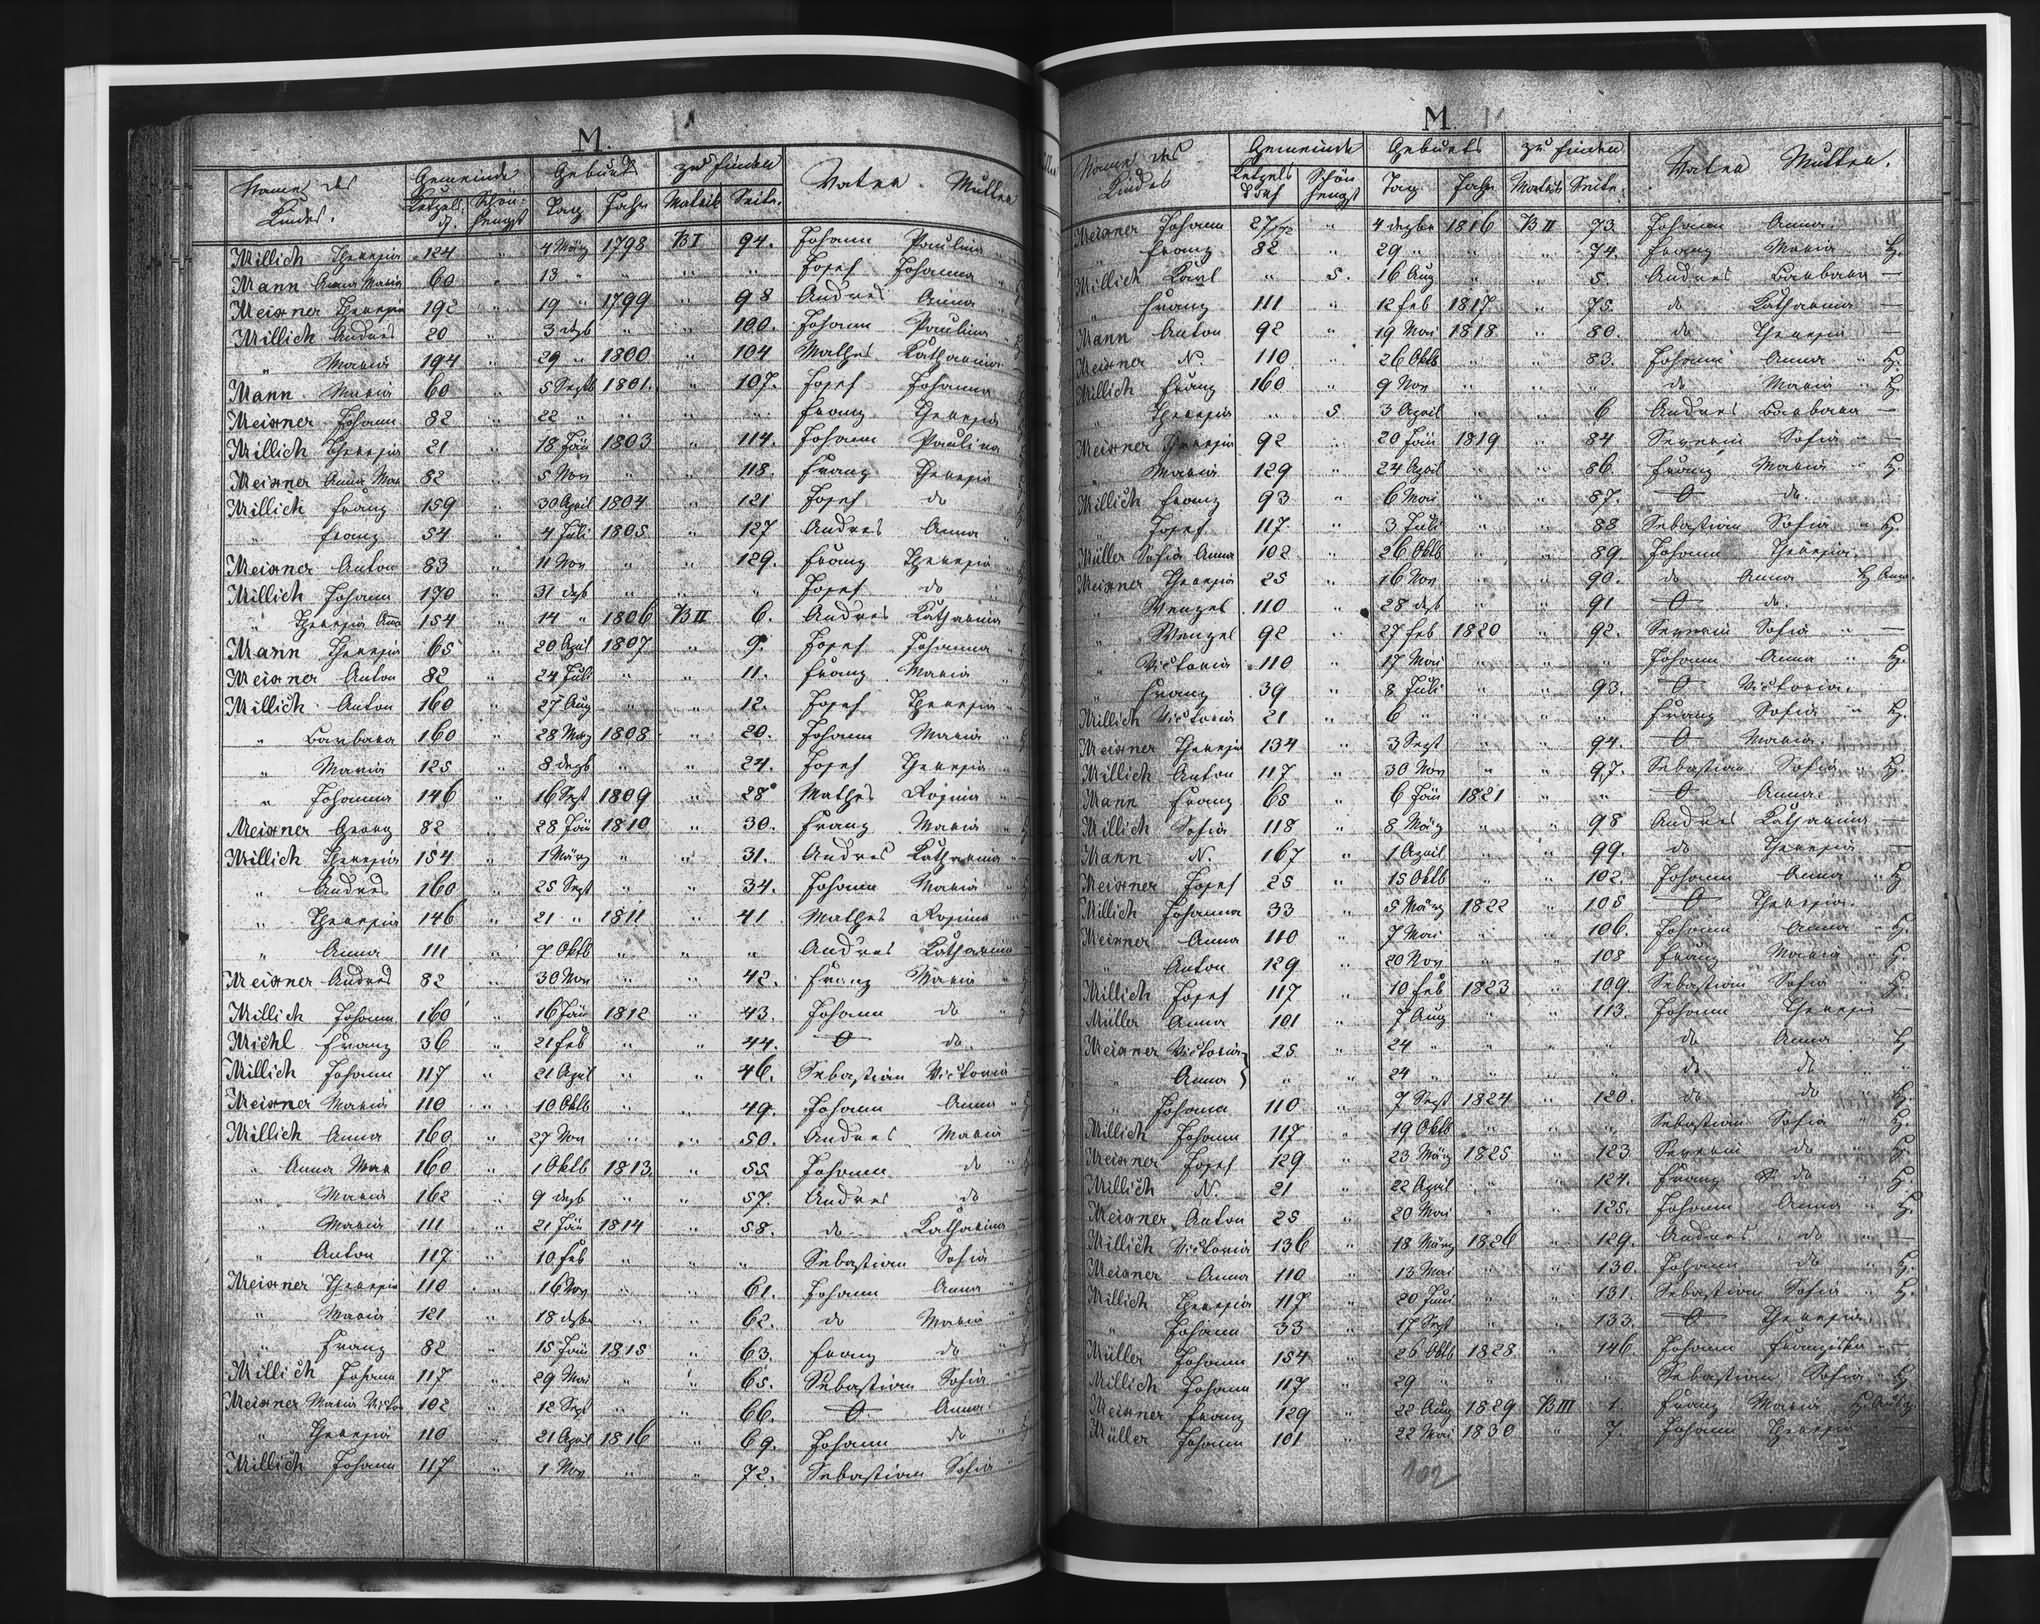 M.
Name des Kindes. Gemeinde Ketzels. d. Schön-hengst Geburts Tag Jahr zu finden Matrik Seite. Vater. Mutter
Millich Theresia 124 " 4 März 1798 B I 94. Johann Paulina
Mann Anna Maria 60 " 13 " " " " Josef Johanna
Meixner Theresia 192 " 19 " 1799 " 98 Andres Anna
Millich Andres 20 " 3 dzb " " 100. Johann Paulina
" Maria 194 " 29 " 1800 " 104 Mathes Katharina
Mann Maria 60 " 5 Septb 1801. " 107. Josef Johanna
Meixner Johann 82 " 22 " " " " Franz Theresia
Millich Theresia 21 " 18 Jän 1803 " 114. Johann Paulina
Meixner Anna Mar 82 " 5 Nov " " 118. Franz Theresia
Millich Franz 159 " 30 April 1804 " 121 Josef do
" Franz 54 " 4 Juli 1805 " 127 Andres Anna
Meixner Anton 83 " 11 Nov " " 129. Franz Theresia
Millich Johann 170 " 31 dzb " " " Josef do
" Theresia Anna 154 " 14 " 1806 B II 6. Andres Katharina
Mann Theresia 65 " 20 April 1807 " 9. Josef Johanna
Meixner Anton 82 " 24 Juli " " 11. Franz Maria
Millich Anton 160 " 27 Aug " " 12. Josef Theresia
" Barbara 160 " 28 März 1808 " 20. Johann Maria
" Maria 125 " 8 dezb " " 24. Josef Theresia
" Johanna 146 " 16 Sept 1809 " 28 Mathes Rosina
Meixner Georg 82 " 28 Jän 1810 " 30. Franz Maria
Millich Theresia 154 " 1 März " " 31. Andres Katharina
" Andres 160 " 25 Sept " " 34. Johann Maria
" Theresia 146 " 21 " 1811 " 41 Mathes Rosina
" Anna 111 " 7 Oktb " " " Andres Katharina
Meixner Andres 82 " 30 Nov " " 42. Franz Maria
Millich Johann 160 " 16 Jän 1812 " 43. Johann do
Michl Franz 36 " 21 Feb " " 44. O do
Millich Johann 117 " 21 April " " 46. Sebastian Victoria
Meixner Maria 110 " 10 Oktb " " 49. Johann Anna
Millich Anna 160 " 27 Nov " " 50. Andres Maria
" Anna Mar 160 " 1 Oktb 1813 " 55 Johann do
" Maria 162 " 9 dezb " " 57. Andres do
" Maria 111 " 21 Jän 1814 " 58. do Katharina
" Anton 117 " 10 Feb " " " Sebastian Sofia
Meixner Theresia 110 " 16 Nov " " 61. Johann Anna
" Maria 121 " 18 dzbr " " 62. do Maria
" Franz 82 " 15 Jän 1815 " 63. Franz do
Millich Johann 117 " 29 Mai " " 65. Sebastian Sofia
Meixner Maria 102 " 12 Sept " " 66. O Anna
" Theresia 110 " 21 April 1816 " 69. Johann do
Millich Johann 117 " 1 Nov " " 72. Sebastian Sofia
M.
Name des Kindes Gemeinde Ketzels dorf Schön hengst Geburts Tag Jahr zu finden Matrik Seite. Vater Mutter.
Meixner Johann 27/172 " 4 dezbr 1816 B II 73. Johann Anna
" Franz 82 " 29 " " " 74. Franz Maria H.
Millich Karl " 5. 16 Aug " " 5. Andres Barbara —
" Franz 111 " 12 Feb 1817 " 75. do Katharina —
Mann Anton 92 " 19 Mai 1818 " 80. do Theresia —
Meixner N. 110 " 26 Oktb " " 83. Johann Anna " H.
Millich Franz 160 " 9 Nov " " " do Maria " H.
" Theresia " 5 3 April " " 6 Andres Barbara —
Meixner Theresia 92 " 20 Jän 1819 " 84. Severin Sofia —
" Maria 129 " 24 April " " 86. Franz Maria " H.
Millich Franz 93 " 6 Mai " " 87. O do.
" Josef 117 " 3 Juli " " 88 Sebastian Sofia " H.
Müller Sofia Anna 102 " 26 Oktb " " 89. Johann Theresia.
Meixner Theresia 25 " 16 Nov " " 90. do Anna
" Wenzel 110 " 28 dzb " " 91 O do.
" Wenzel 92 " 27 Feb 1820 " 92. Severin Sofia " —
" Victoria 110 " 17 Mai " " " Johann Anna " H.
" Franz 39 " 8 Juli " " 93. O Victoria.
Millich Victoria 21 " 6 " " " " Franz Sofia " H.
Meixner Theresia 134 " 3 Sept " " 94. O Maria.
Millich Anton 117 " 30 Nov " " 97. Sebastian Sofia " H.
Mann Franz 65 " 6 Jän 1821 " " O Anna.
Millich Sofia 118 " 8 März " " 98 Andres Katharina —
Mann N. 167 " 1 April " " 99. do Theresia —
Meixner Josef 25 " 15 Oktb " " 102 Johann Anna " H
Millich Johanna 33 " 5 März 1822 " 105 O Theresia.
Meixner Anna 110 " 7 Mai " " 106. Johann Anna " H.
" Anton 129 " 20 Nov " " 108 Franz Maria " H.
Millich Josef 117 " 10 Feb 1823 " 109. Sebastian Sofia H.
Müller Anna 101 " 7 Aug " " 113. Johann Theresia —
Meixner Victoria } 25 " 24 " " " " do Anna H
" Anna } " " 24 " " " " do do "
" Johann 110 " 7 Sept 1824 " 120. do do " H.
Millich Johann 117 " 19 Oktb " " " Sebastian Sofia " H.
Meixner Josef 129 " 23 März 1825 " 123 Severin do " H.
Millich N. 21 " 22 April " " 124. Franz do " H.
Meixner Anton 25 " 20 Mai " " 125. Johann Anna " H.
Millich Victoria 136 " 18 März 1826 " 129. Andres do " —
Meixner Anna 110 " 13 Mai " " 130. Johann do " H.
Millich Theresia 117 " 20 Juni " " 131. Sebastian Sofia " H.
" Johann 33 " 17 Sept " " 133. O Theresia.
Müller Johann 154 " 26 Oktb 1828 " 146 Johann Franziska —
Millich Johann 117 " 29 " " " " Sebastian Sofia " H
Meixner Franz 129 " 22 Aug 1829 B III 1. Franz Maria
Müller Johann 101 " 22 Mai 1830 " 7. Johann Theresia
102